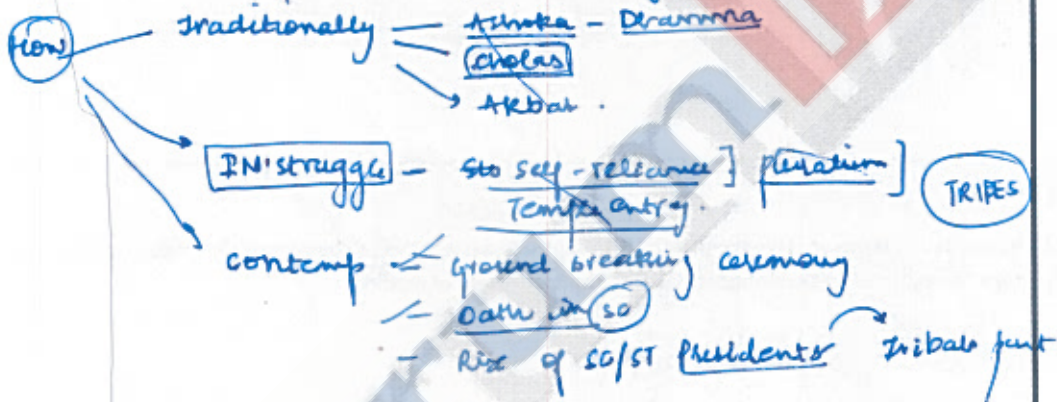 How
Traditionally - Ashoka - Dhamma
Cholas
Akbar.
IN'struggle - self-reliance ]
TRIBES
Temple entry.
contemp - Ground breaking ceremony
- Oath in SC
- Rise of SC/ST Presidents Tribal